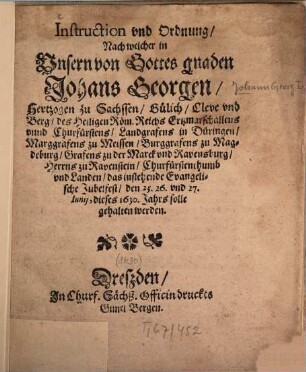 Instruction vnd Ordnung/
Nach welcher in
Vnsern von Gottes gnaden
Johans Georgen/
Hertzogen zu Sachssen/ Gülich/ Cleve vnd
Berg/ des Heiligen Röm. Reichs Ertzmarschallens
vnnd Churfürstens/ Landgrafens in Düringen/
Marggrafens zu Meissen/ Burggrafens zu Mag-
deburg/ Grafens zu der Marck vnd Ravensburg/
Herrns zu Ravenstein/ Churfürstenthumb
vnd Landen/ das instehende Evangeli-
sche Jubelfest/ den 25. 26. vnd 27.
Iunij dieses 1630. Jahrs solle
gehalten werden.
(1630)
Dreßden/
In Churf. Sächß. Officin druckts
Gimel Bergen.
Johann Georg I.
T/67/452